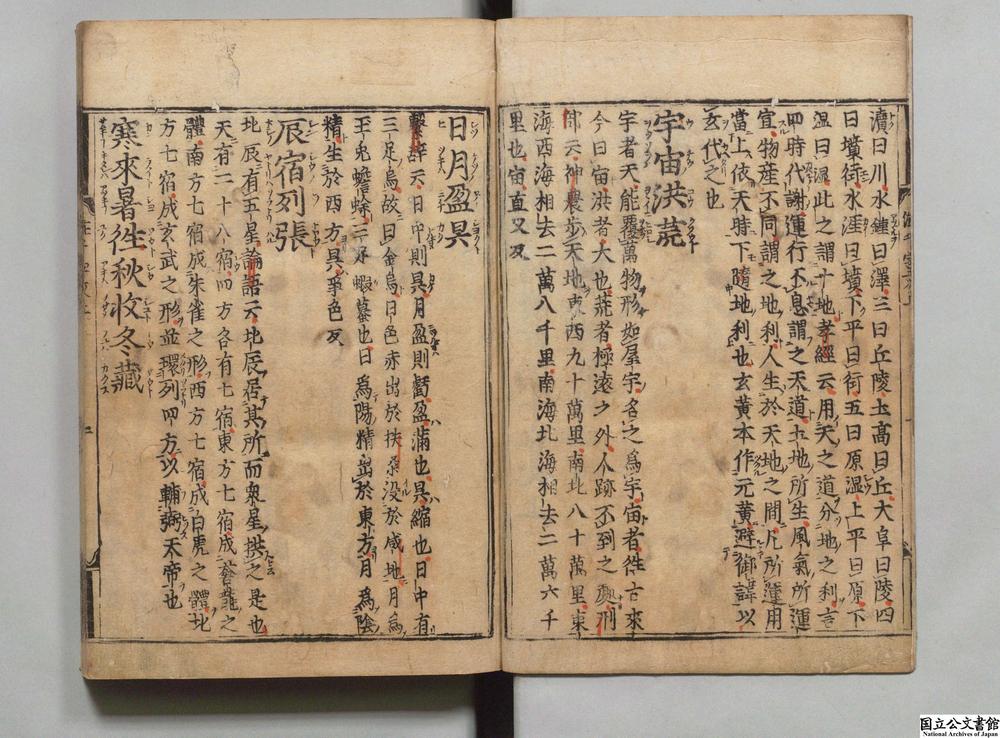 瀆曰川水鍾曰澤三曰丘陵土高曰丘大阜曰陵四
曰墳衍水涯曰墳下平曰衍五曰原濕上平曰原下
濕曰濕此之謂十地孝經云用天之道分地之利言
四時代謝運行不息謂之天道土地所生風氣所運
宜物産不同謂之地利人生於天地之間凡所運用
當上依天時下隨地利也玄黄本作元黄避御諱以
玄代之也
宇宙洪荒
宇者天能覆萬物形如屋宇名之爲宇宙者徃古來
今曰宙洪者大也荒者極遠之外人跡不到之處
云神農歩天地東西九十萬里南北八十萬里東
海西海相去二萬八千里南海北海相去二萬六千
里也宙直又反
日月盈昃
繫辞云日中則昃月盈則虧盈滿也昃縮也日中有
三足烏故曰金烏日色赤出於扶桒没於咸地月爲
玉兎蟾蜍三好蝦蟇也日爲陽精出於東方月爲陰
精生於西方昃爭色反
辰宿列張
北辰有五星論語云北辰居其所而衆星拱之是也
天有二十八宿四方各有七宿東方七宿成蒼龍之
體南方七宿成朱雀之形西方七宿成白虎之體北
方七宿成玄武之形並環列四方以輔弼天帝也
寒來暑徃秋收冬藏
国立公文書館
National Archives of Japan